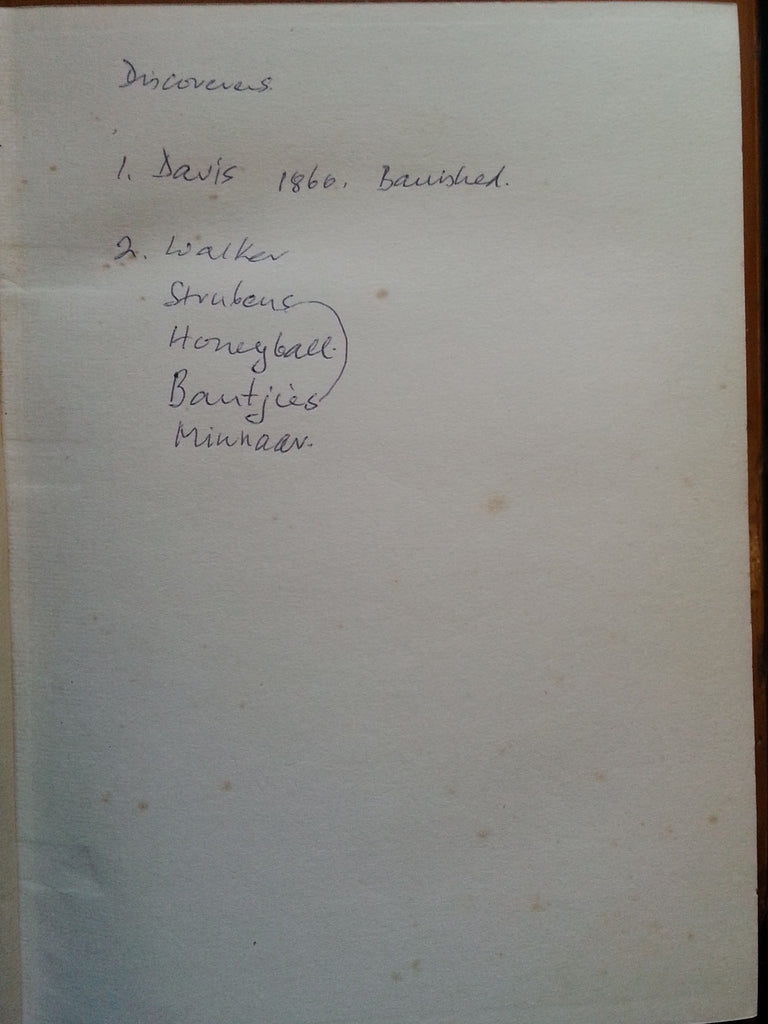 Discoverers
1. Davis 1866. Banished.
2. Walker
Strubens
Honeyball.
Bantjies
Minnaar.